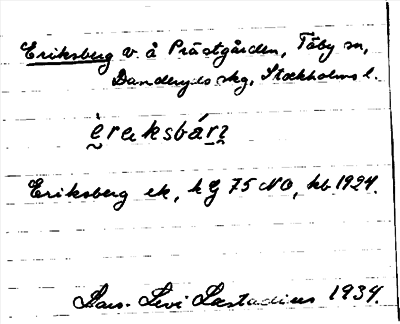 Eriksberg v. å Prästgården, Täby sn,
Danderyds skg, Stockholms l.
Eriksberg ek, kG 75 NO, kb 1924.
Lars-Levi Læstadius 1934.